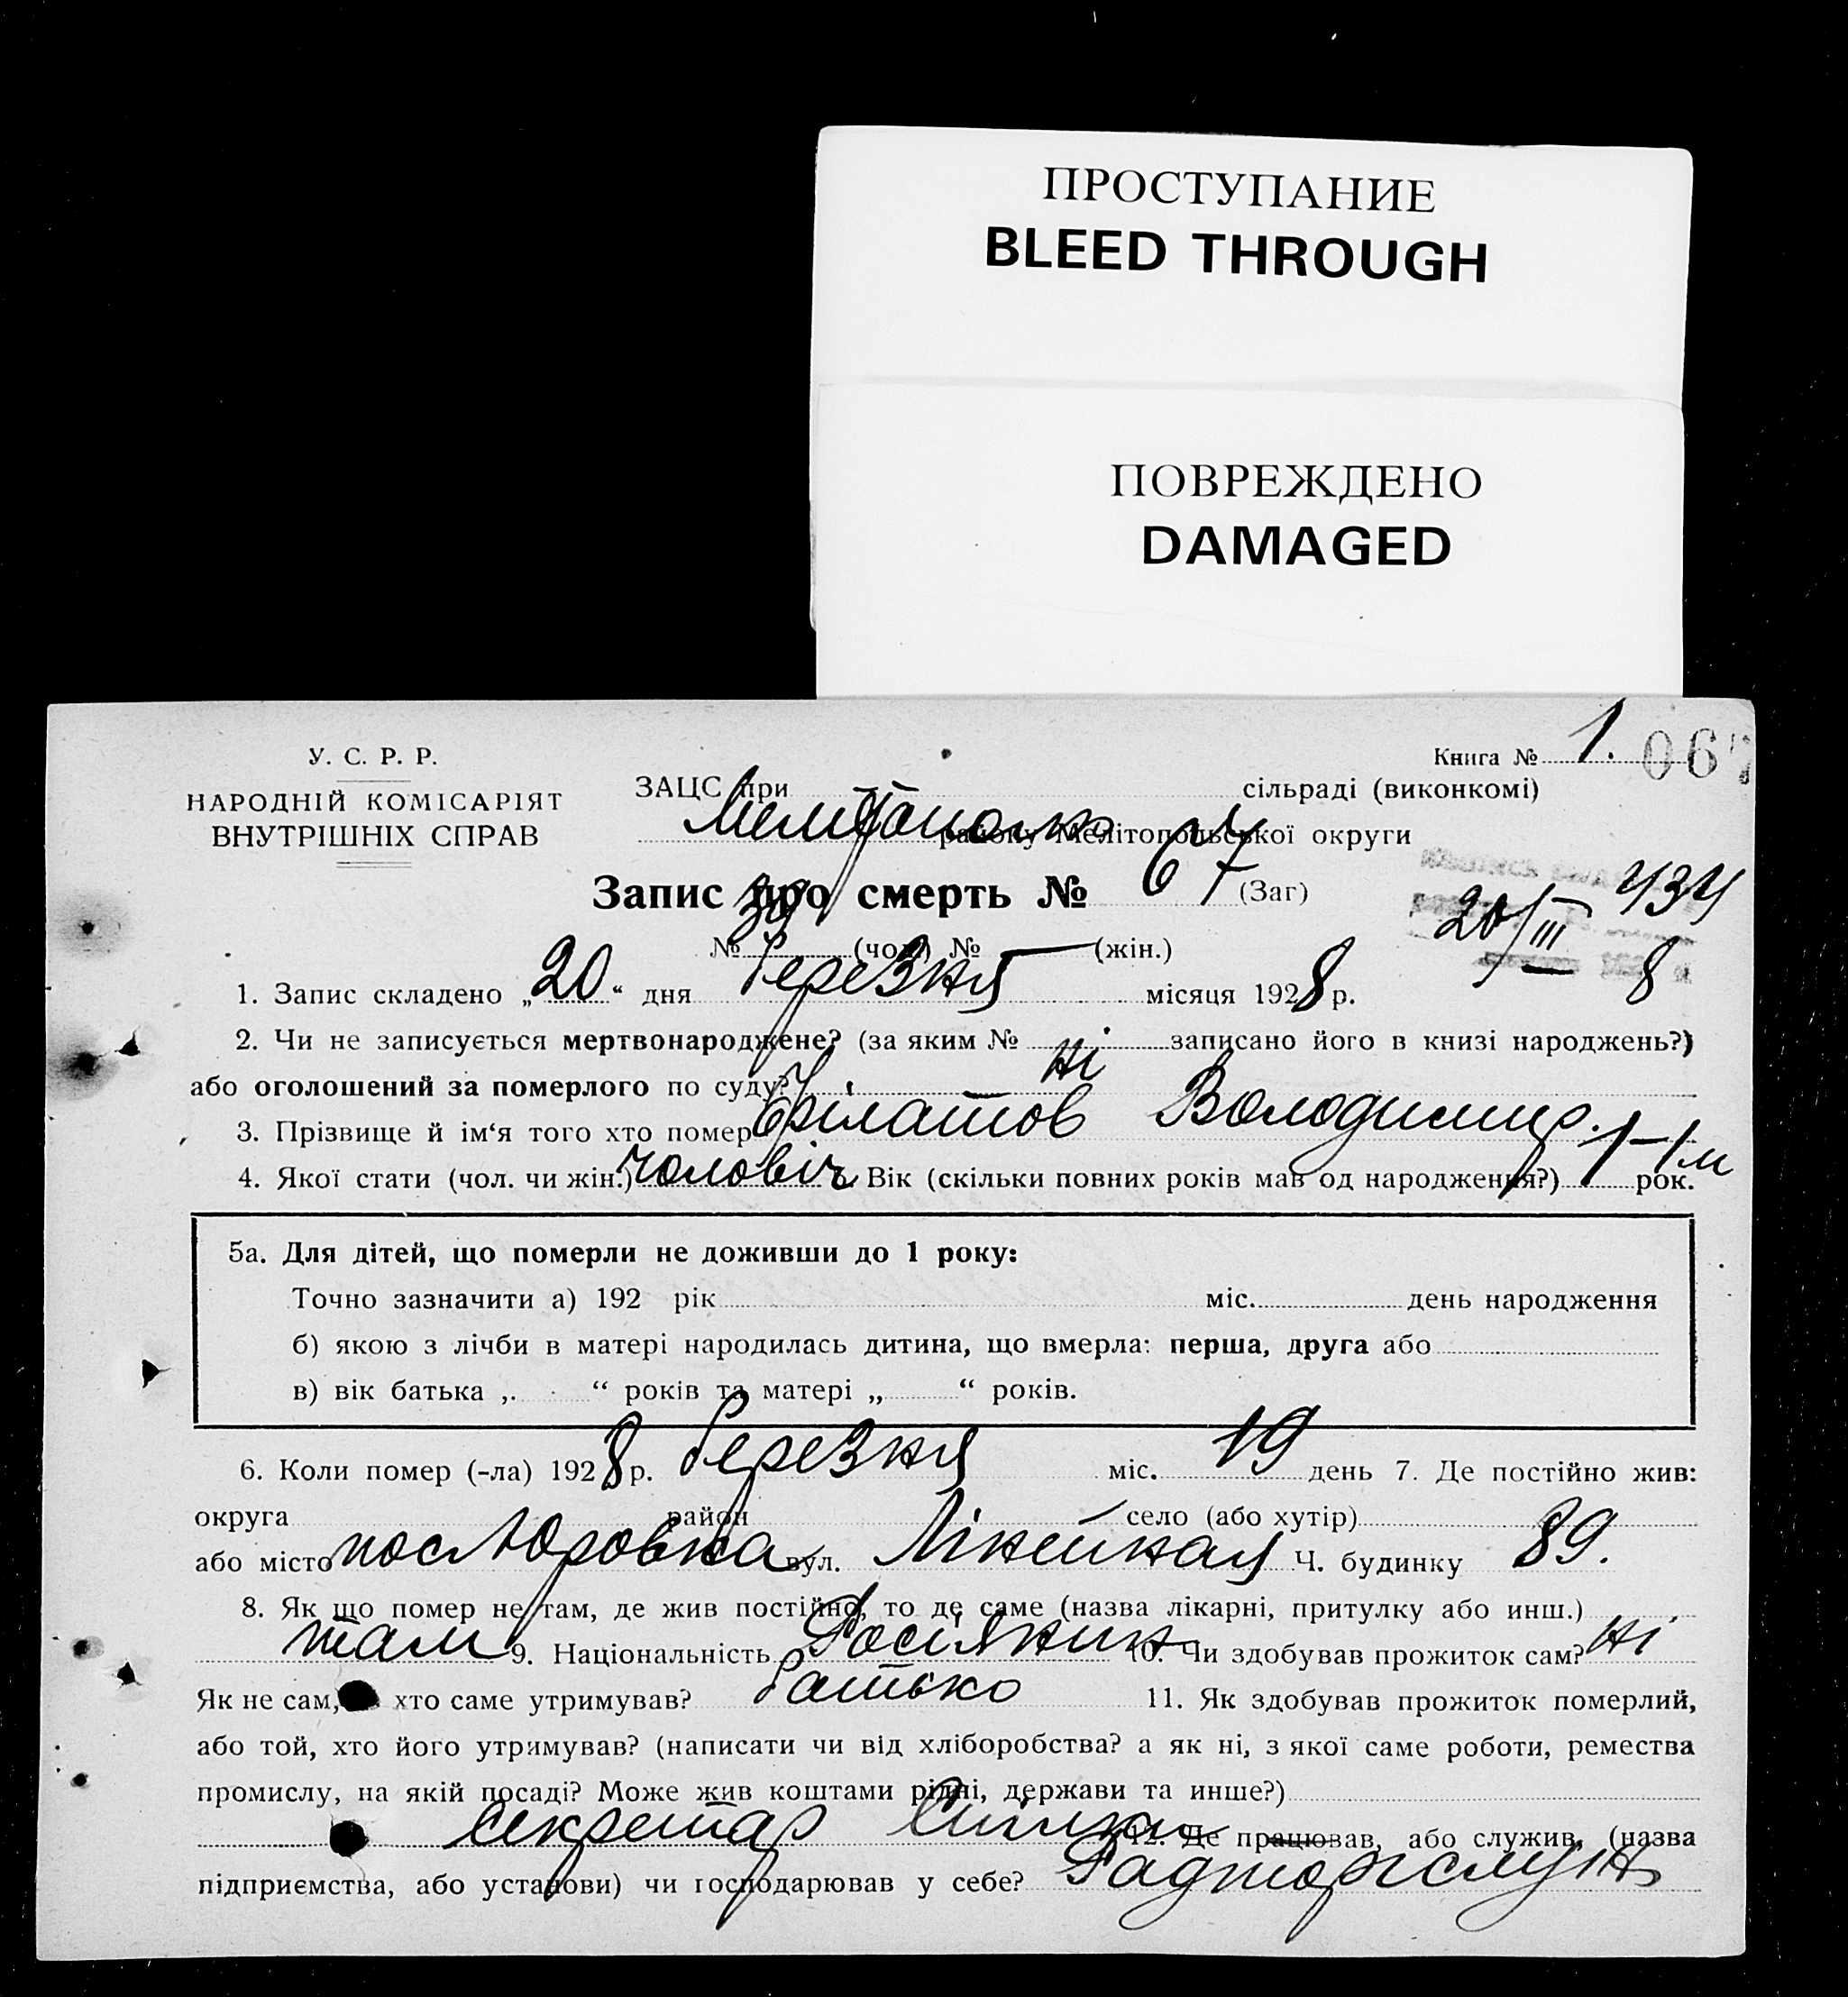 ПРОСТУПАНИЕ
BLEED THROUGH
ПОВРЕЖДЕНО
DAMAGED
У. С. Р. Р.
НАРОДНІЙ КОМІСАРІЯТ
ВНУТРІШНІХ СПРАВ
Книга № 1. 067
ЗАЦС при сільраді (виконкомі)
району Мелітопольської округи
Запис про смерть № 67 (Заг)
434
20/III 8
№ 39 (чол) № — (жін.)
1. Запис складено „20“ дня березня місяця 1928 р.
2. Чи не записується мертвонароджене? (за яким № записано його в книзі народжень?)
або оголошений за померлого по суду? ні
3. Прізвище й ім‘я того хто помер Філатов Володимир.
4. Якої стати (чол. чи жін.) чоловіч Вік (скільки повних років мав од народження?) 1-1м рок.
5а. Для дітей, що померли не доживши до 1 року:
Точно зазначити а) 192 рік міс. день народження
б) якою з лічби в матері народилась дитина, що вмерла: перша, друга або
в) вік батька „ “ років та матері „ “ років.
6. Коли помер (-ла) 1928 р. березня міс. 19 день 7. Де постійно жив:
округа район село (або хутір)
або місто пос Юровка вул. Лінейная Ч. будинку 89.
8. Як що помер не там, де жив постійно, то де саме (назва лікарні, притулку або инш.)
там 9. Національність Росіянин 10. Чи здобував прожиток сам? ні
Як не сам, хто саме утримував? батько 11. Як здобував прожиток померлий,
або той, хто його утримував? (написати чи від хліборобства? а як ні, з якої саме роботи, ремества
промислу, на якій посаді? Може жив коштами рідні, держави та инше?)
секретар Спілки 12. Де працював, або служив, (назва
підприємства, або установи) чи господарював у себе? Радторгслуж